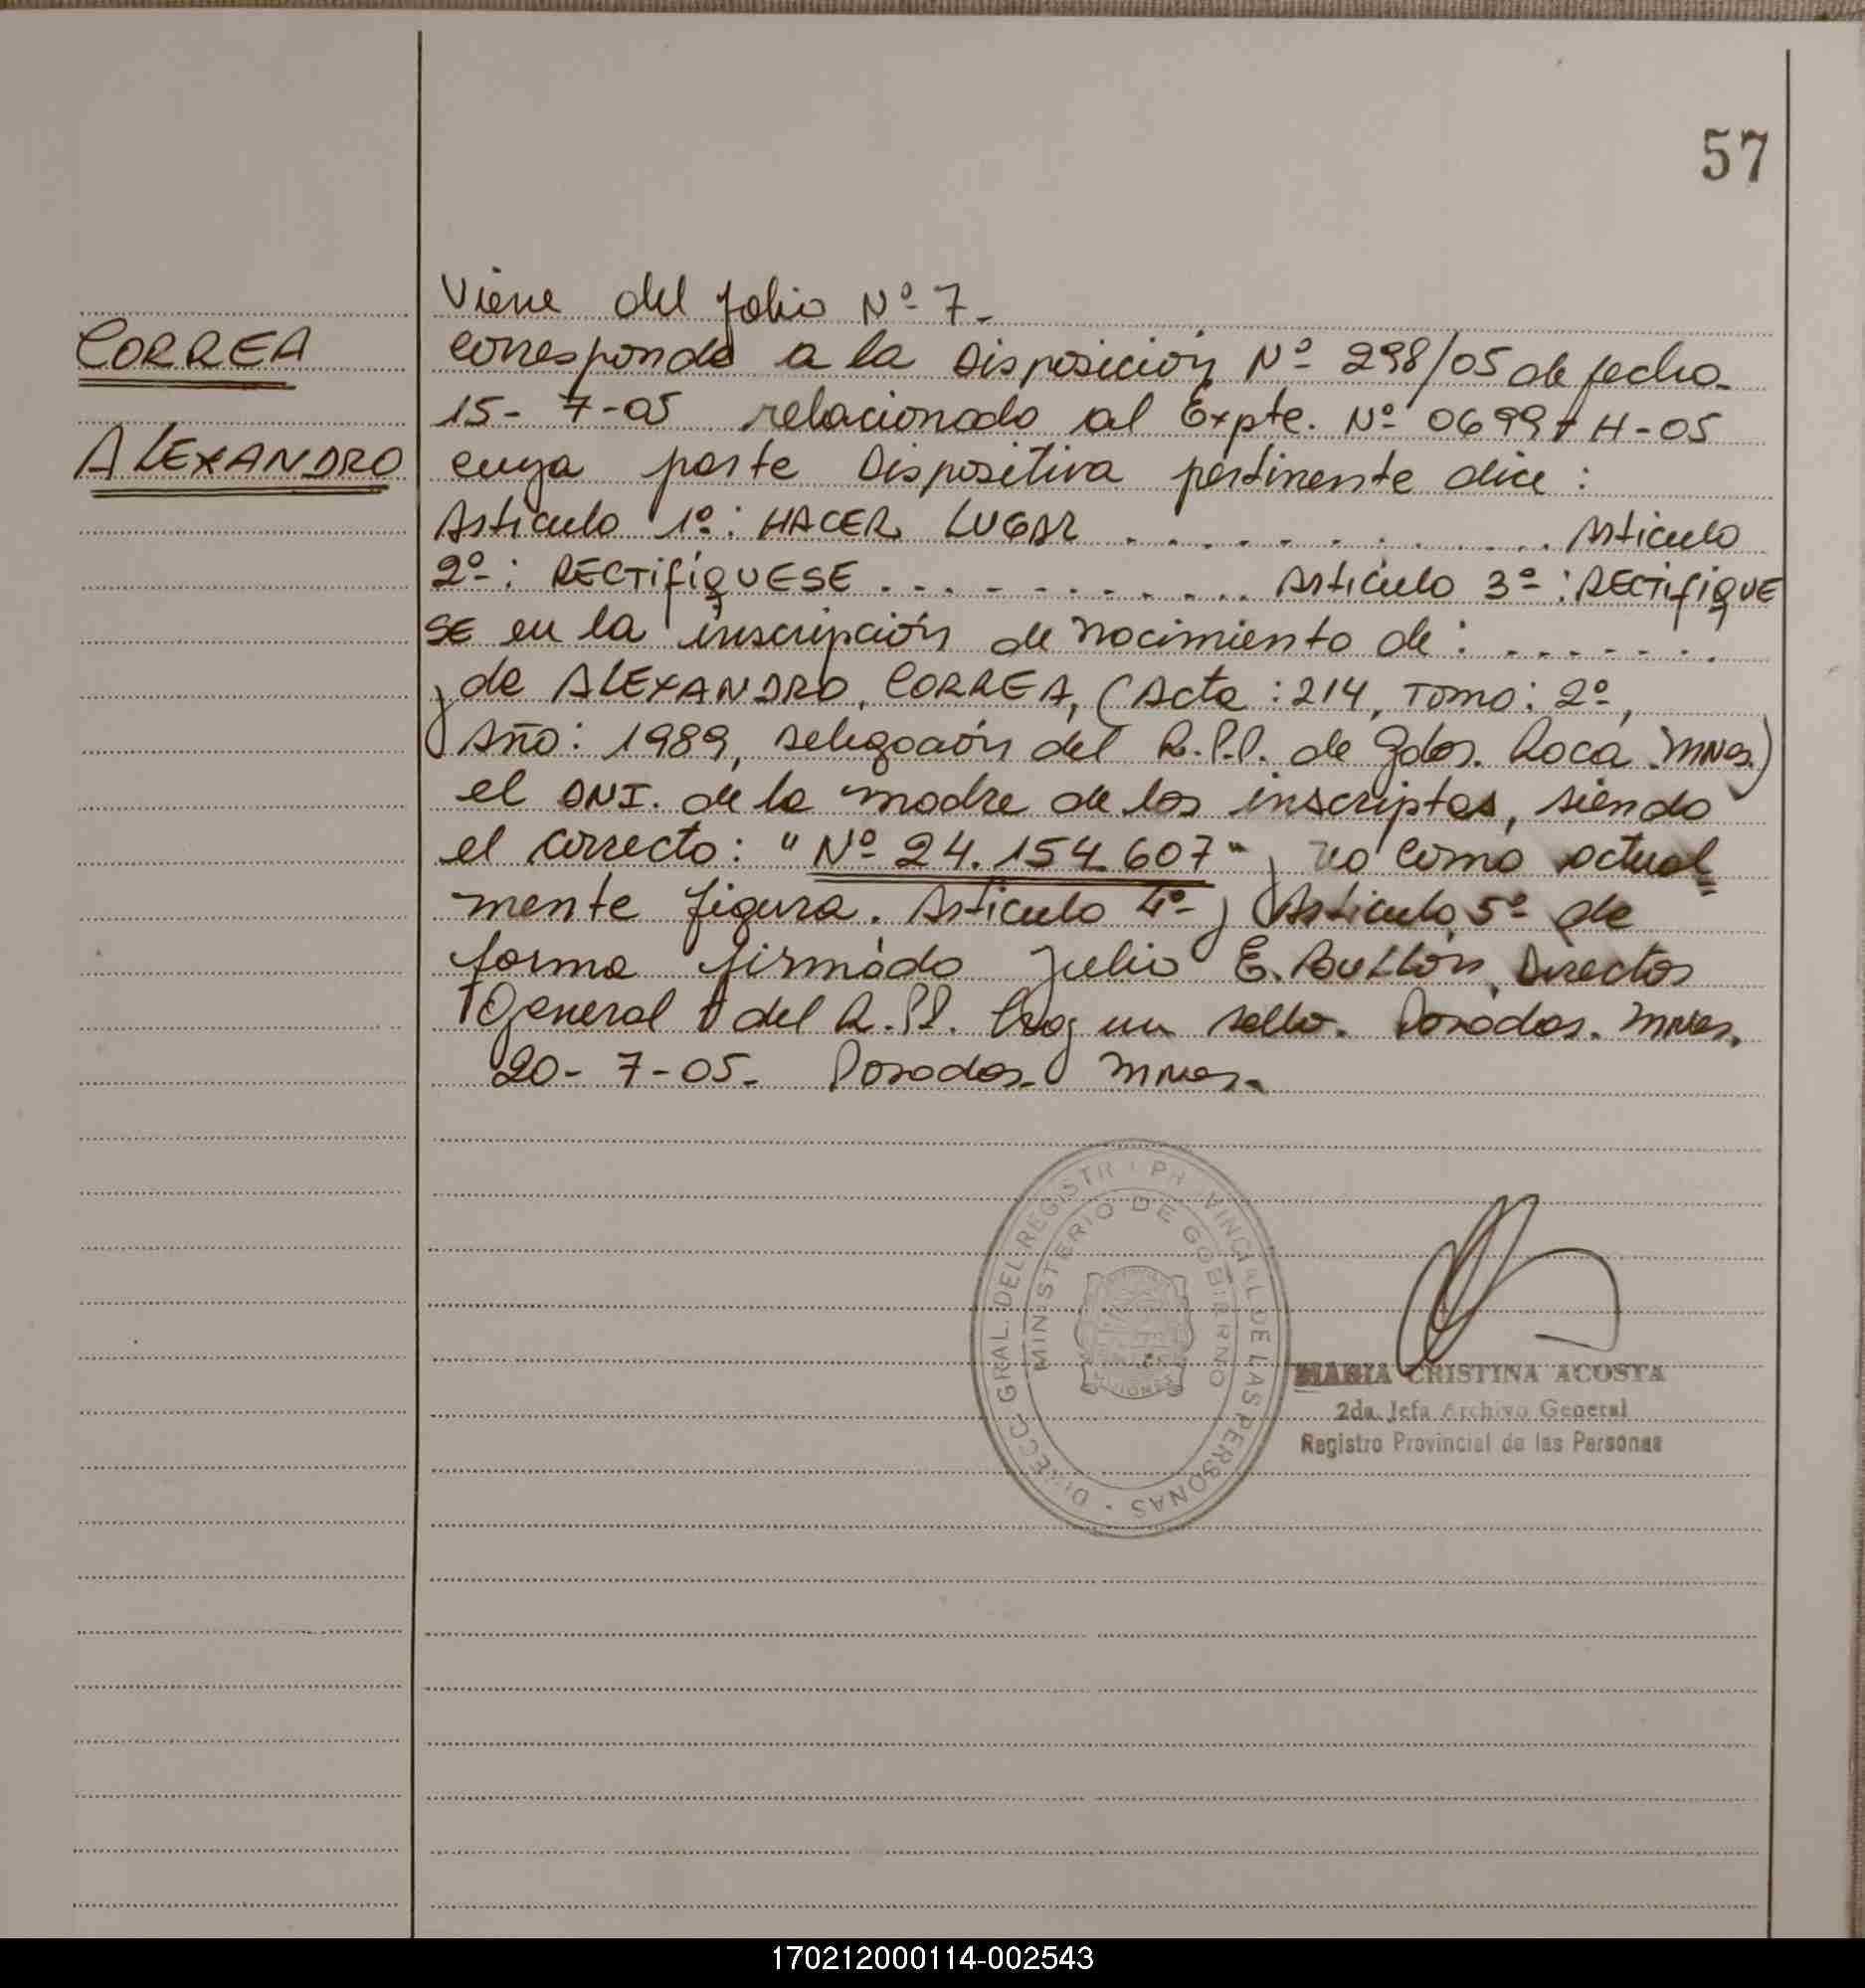 57
Viene del folio Nº 7.
CORREA
ALEXANDRO
Corresponde a la Disposición Nº 298/05 de fecha
15-7-05 relacionado al Expte. Nº 0699 H-05
cuya parte Dispositiva pertinente dice:
Articulo 1º: HACER LUGAR .............. Articulo
2º: RECTIFÍQUESE ............ Articulo 3º: RECTIFIQUE
SE en la inscripción de nacimiento de: .......
y de ALEXANDRO CORREA, (Acta: 214, Tomo: 2º,
Año: 1989, Delegación del R.P.P. de Gdor. Roca. Mnes.)
el DNI. de la madre de los inscriptos, siendo
el correcto: "Nº 24.154.607" y no como actual=
mente figura. Articulo 4º y Articulo 5º de
forma firmado Julio E. Director
General del R.P.P. Hay un sello. Posadas. Mnes.
20-7-05. Posadas Mnes.
DIRECC. GRAL. DEL REGISTRO PROVINCIAL DE LAS PERSONAS
MINISTERIO DE GOBIERNO
MISIONES
MARIA CRISTINA ACOSTA
2da. Jefa Archivo General
Registro Provincial de las Personas
170212000114-002543